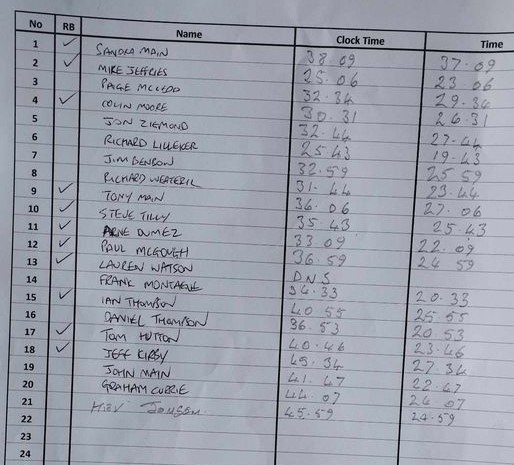 No RB Name Clock Time Time
1 ✓ SANDRA MAIN 38.09 37.09
2 ✓ MIKE JEFFRIES 25.06 23.06
3 PAIGE MCLEOD 32.34 29.34
4 ✓ COLIN MOORE 30.31 26.31
5 JON ZIEMOND 32.44 27.44
6 RICHARD LILLEKER 25.43 19.43
7 JIM BENSON 32.59 25.59
8 RICHARD WEATERIL 31.44 23.44
9 ✓ TONY MAIN 36.06 27.06
10 ✓ STEVE TILLY 35.43 25.43
11 ✓ ARNE DUMEZ 33.09 22.09
12 ✓ PAUL MCGOUGH 36.59 24 59
13 ✓ LAUREN WATSON DNS
14 FRANK MONTAGUE 34.33 20.33
15 ✓ IAN THOMPSON 40 55 25.55
16 DANIEL THOMPSON 36.53 20 53
17 ✓ TOM HUTTON 40.46 23.46
18 ✓ JEFF KIRBY 49.34 27.34
19 JOHN MAIN 41.47 22.47
20 GRAHAM CURRIE 44.07 24.07
21 KEV 45.59 24.59
22
23
24